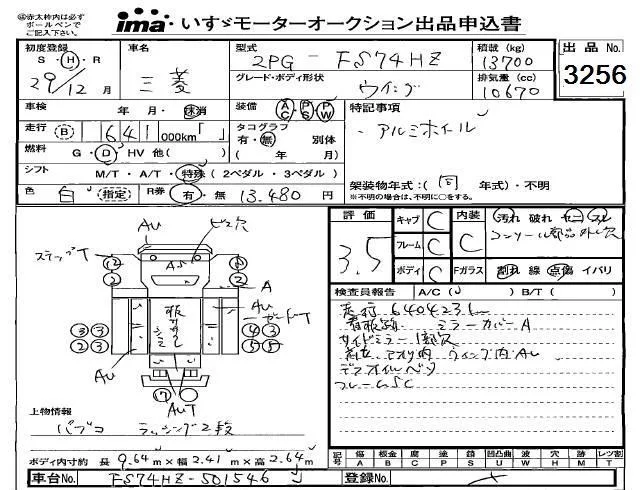 ㊟赤太枠内は必ず
ボールペンで
ご記入下さい。
ima いすゞモーターオークション出品申込書
初度登録 車名 型式 積載(kg) 出品 No.
S・H・R 三菱 2PG - FS74HZ 13700
29/12 月 グレード・ボディ形状 排気量(cc) 3256
ウイング 10670
車検 年 月・抹消 装備 AC・PS・PW 特記事項
走行 (B) 641 000km「 」 タコグラフ ・アルミホイル
有・無 別体
燃料 G・D・HV 他( ) ( 年 月)
シフト M/T・A/T・特殊(2ペダル・3ペダル)
色 白 (指定) R券 有・無 13.480 円
架装物年式:(同 年式)・不明
※不明の場合は、不明に○をする。
評価 キャブ C 内装 汚れ 破れ ヤニ スレ
3.5 フレーム C C コンソール部品外し穴
ボディ C Fガラス 割れ 線 点傷 イバリ
検査員報告 A/C( ) B/T( )
走行 640423km
看板跡 ミラーカバーA
サイドミラー1部欠
アオリ内 ウィング内AU
デフオイルベツ
フレームSC
AU ビス穴
ステップT
② ② AS ② ②
A
AU
ガードT
③ ③ ④ ③
② ③ ⑤ ⑤
AU
⑦
AUT
上物情報
パブコ ラッシング2段
ボディ内寸約 長 9.64m×幅 2.41m×高 2.64m
記号 傷 板金 腐 塗 錆 凹凸曲 凹 穴 跡 レツ割
A B C P S U V H M T
車台No. FS74HZ-501546 登録No.